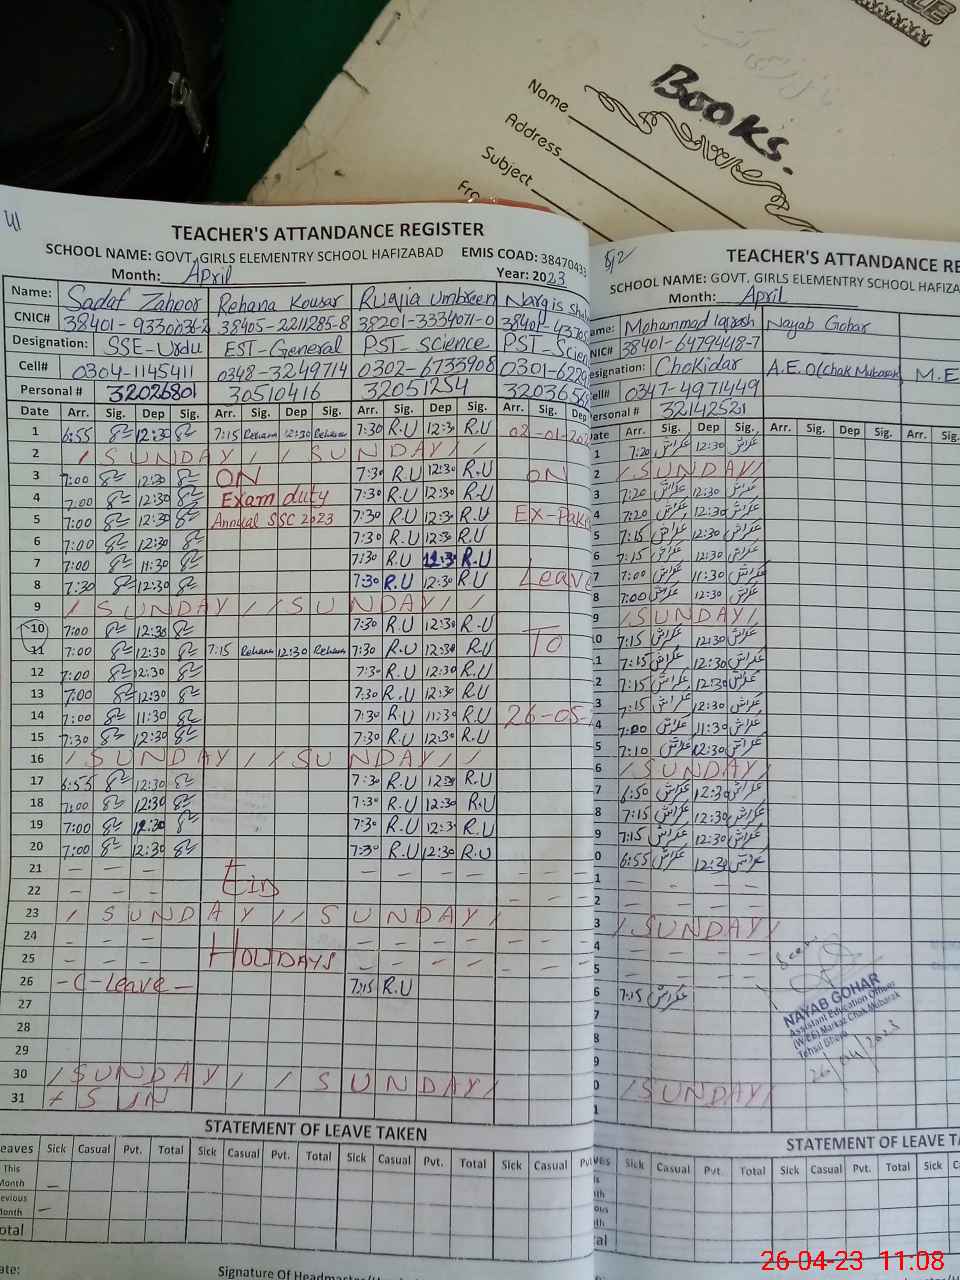 Books.
Name
Address
Subject
41
TEACHER'S ATTANDANCE REGISTER
SCHOOL NAME: GOVT. GIRLS ELEMENTRY SCHOOL HAFIZABAD EMIS COAD: 38470433
Month: April Year: 2023
Name: Sadaf Zahoor Rehana Kousar Ruqjia Umbreen Nargis
CNIC# 38405-2211285-8 38201-3334071-0
Designation: SSE-Urdu EST-General PST-Science PST-Scien
Cell# 0304-1145411 0348-3249714 0302-6733908
Personal # 32026801 30510416 32051254
Date Arr. Sig. Dep Sig. Arr. Sig. Dep Sig. Arr. Sig. Dep Sig. Arr. Sig. Dep
1 6:55 12:30 7:15 Rehana 12:30 Rehana 7:30 R.U 12:30 R.U
2 / SUNDAY / / SUNDAY / /
3 7:00 12:30 ON 7:30 R.U 12:30 R.U ON
4 7:00 12:30 Exam duty 7:30 R.U 12:30 R.U
5 7:00 12:30 Annual SSC 2023 7:30 R.U 12:30 R.U EX-Pak
6 7:00 12:30 7:30 R.U 12:30 R.U
7 7:00 11:30 7:30 R.U R.U
8 7:30 12:30 7:30 R.U 12:30 R.U Leave
9 / SUNDAY / / SUNDAY / /
10 7:00 12:30 7:30 R.U 12:30 R.U
11 7:00 12:30 7:15 Rehana 12:30 Rehana 7:30 R.U 12:30 R.U To
12 7:00 12:30 7:30 R.U 12:30 R.U
13 7:00 12:30 7:30 R.U 12:30 R.U
14 7:00 11:30 7:30 R.U 11:30 R.U 26-05-
15 7:30 12:30 7:30 R.U 12:30 R.U
16 / SUNDAY / / SUNDAY / /
17 6:55 12:30 7:30 R.U 12:30 R.U
18 7:00 12:30 7:30 R.U 12:30 R.U
19 7:00 12:30 7:30 R.U 12:30 R.U
20 7:00 12:30 7:30 R.U 12:30 R.U
21 – – Eid – – – – – –
22 – –
23 / SUNDAY / / SUNDAY /
24 – –
25 – – HOLIDAYS – – – – – –
26 -C-Leave- 7:15 R.U
27
28
29
30 / SUNDAY / / SUNDAY /
31 SUN
STATEMENT OF LEAVE TAKEN
eaves Sick Casual Pvt. Total Sick Casual Pvt. Total Sick Casual Pvt. Total Sick Casual
This
Month –
evious
Month –
otal
ate: Signature Of Headmaster/
TEACHER'S ATTANDANCE RE
SCHOOL NAME: GOVT. GIRLS ELEMENTRY SCHOOL HAFIZA
Month: April
ame: Mohammad Nayab Gohar
NIC# 38401-6479448-7
esignation: Chokidar A.E.O(Chak Mubarak) M.E
ell# 0347-4971449
ersonal # 32142521
ate Arr. Sig. Dep Sig. Arr. Sig. Dep Sig. Arr. Sig.
1 7:20 12:30
2 / SUNDAY /
3 7:20 12:30
4 7:20 12:30
5 7:15 12:30
6 7:15 12:30
7 7:00 11:30
8 7:00 12:30
9 / SUNDAY /
0 7:15 12:30
1 7:15 12:30
2 7:15 12:30
3 7:15 12:30
4 7:00 11:30
5 7:10 12:30
6 / SUNDAY /
7 6:50 12:30
8 7:15 12:30
9 7:15 12:30
0 6:55 12:30
1 – – – –
2 – – – –
3 / SUNDAY /
4 – – – –
5 – – – –
6 7:15
7
8
9
0 / SUNDAY /
1
Seen
NAYAB GOHAR
Assistant Education Officer
(W-EE) Markaz Chak Mubarak
Tehsil Bhera
26/04/2023
STATEMENT OF LEAVE TA
ves Sick Casual Pvt. Total Sick Casual Pvt. Total Sick C
is
nth
ous
nth
al
26-04-23 11:08